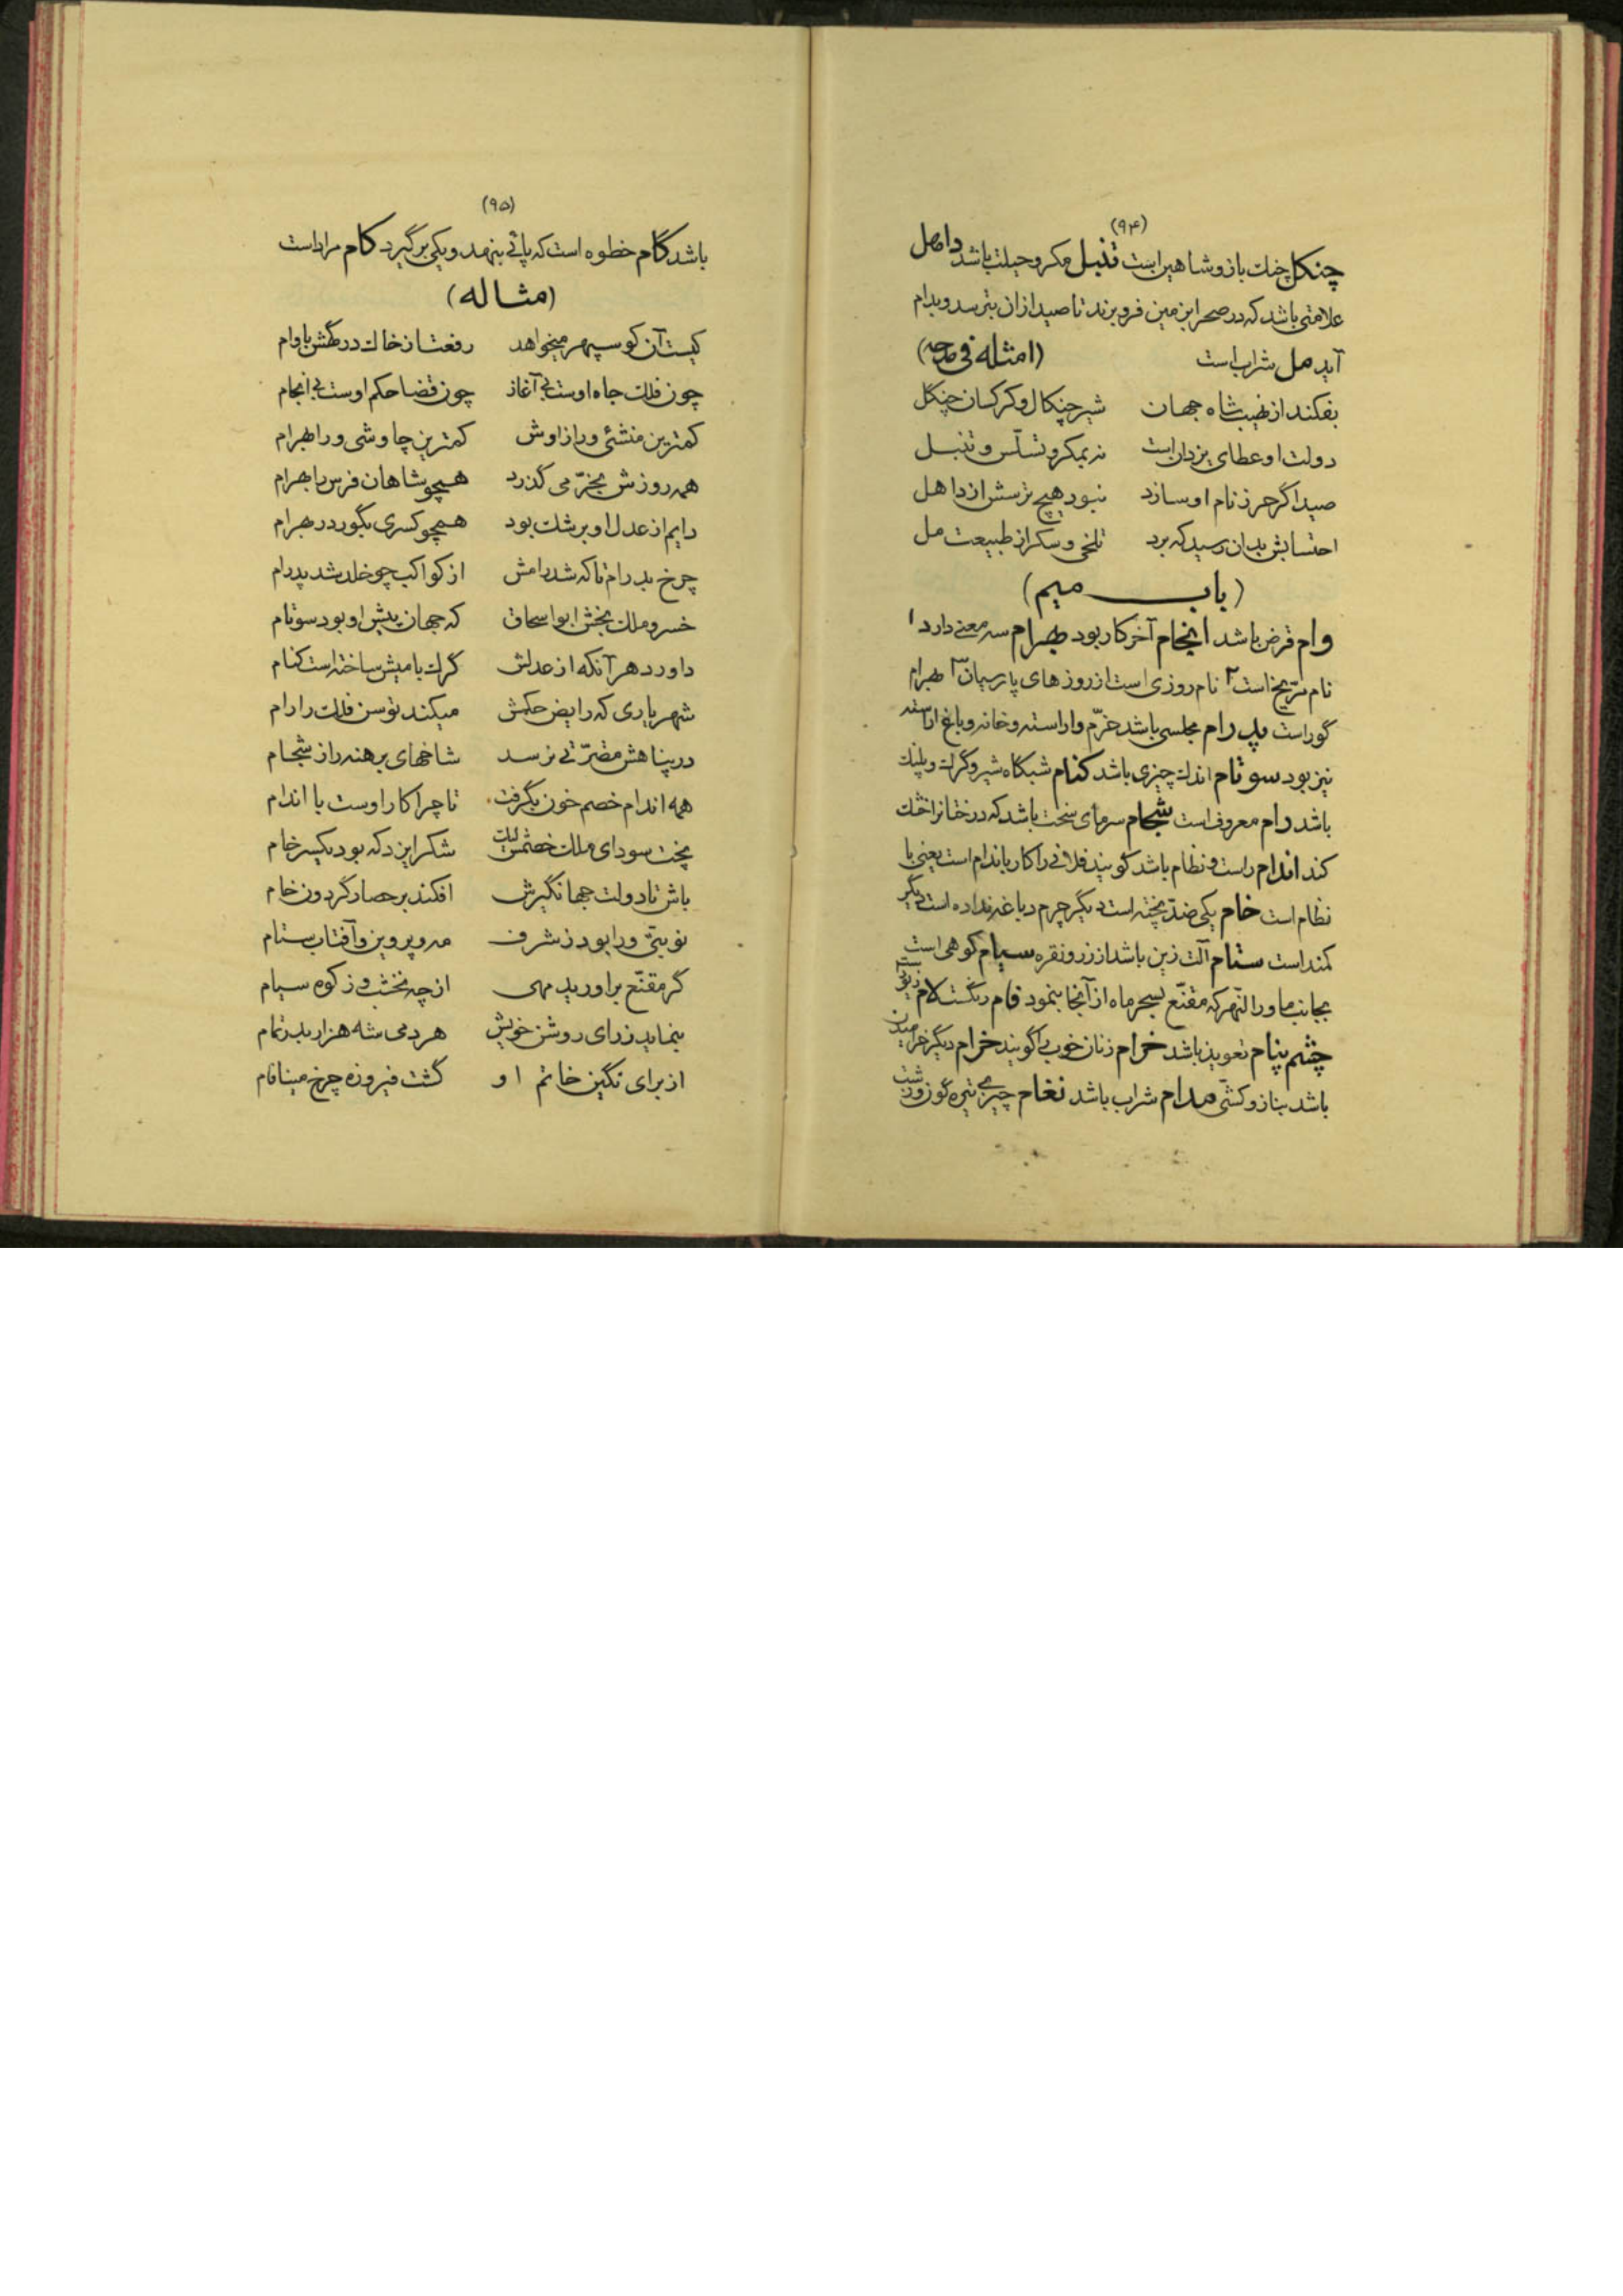 (۹۴)
چنکل چنك باز و شاهین است تنبل مکر و حیلت باشد داهل
علامتی باشد که در صحرا بزمین فرو برند تا صید از ان بترسد و بدام
آید مل شراب است (امثله فی مدحه)
بفکند از نهیب شاه جهان شیر چنکال و کرکسان چنکل
دولت او عطای یزدان است نه بمکر و تسلّس و تنبـل
صید اگر حرز نام او سازد نبود هیچ ترسش از داهل
احتسابش بدان رسید که برد تلخی و سکر از طبیعت مل
(باب میم)
وام قرض باشد انجام آخر کار بود بهرام سه معنی دارد ۱
نام مرّیخ است ۲ نام روزی است از روزهای پارسیان ۳ بهرام
گور است پدرام مجلسی باشد خرّم و اراسته و خانه و باغ اراسته
نیز بود سوتام اندك چیزی باشد کنام شبکاه شیر و گرك و پلنك
باشد رام معروف است شجام سرمای سخت باشد که درختانرا خشك
کند اندام راست و نظام باشد کویند فلانی را کار باندام است یعنی با
نظام است خام یکی ضدّ پخته است دیگر چرم دباغه نداده است دیگر
کمند است ستام آلت زین باشد از زر و نقره سیام کوهی است
بجانب ماوراالنهر که مقنّع بسحر ماه از آنجا بنمود فام رنگست
چشم پنام تعویذ باشد خرام زنان خوب را گویند خرام دیگر خرامیدن
باشد بناز و کشّی مدام شراب باشد نغام چیزی تیره گون و زشت
(۹۵)
باشد گام خطوه است که پائی بنهد و یکی برگیرد کام مراد است
(مثاله)
کیست آن کو سپهر میخواهد رفعت از خاك درگهش باوام
چون فلك جاه اوست بی آغاز چون قضا حکم اوست بی انجام
کمترین منشئی ورا زاوش کمترین چاوشی ورا بهرام
همه روزش بخرّمی گذرد همچو شاهان فرس را بهرام
دایم از عدل او برشك بود همچو کسری بگور در بهرام
چرخ بدرام تا که شد رامش از کواکب چو خلد شد پدرام
خسرو ملك بخش ابو اسحاق که جهان پیش او بود سوتام
داور دهر آنکه از عدلش گرك با میش ساخته است کنام
شهریاری که رایض حکمش میکند توسن فلك را رام
در پناهش مضرّتی نرسد شاخهای برهنه را ز شجام
همه اندام خصم خون بگرفت تا چرا کار اوست با اندام
پخت سودای ملك خصمش لیك شکر ایزد که بود یکسر خام
باش تا دولت جهانگیرش افکند بر حصار گردون خام
نوبتیّ ورا بود ز شرف مه و پروین و آفتاب ستام
گر مقنّع براورید مهی از چه نخشب و ز کوه سیام
بنماید ز رای روشن خویش هر دمی شه هزار بدر تمام
از برای نگین خاتم او گشت فیروزه چرخ مینافام